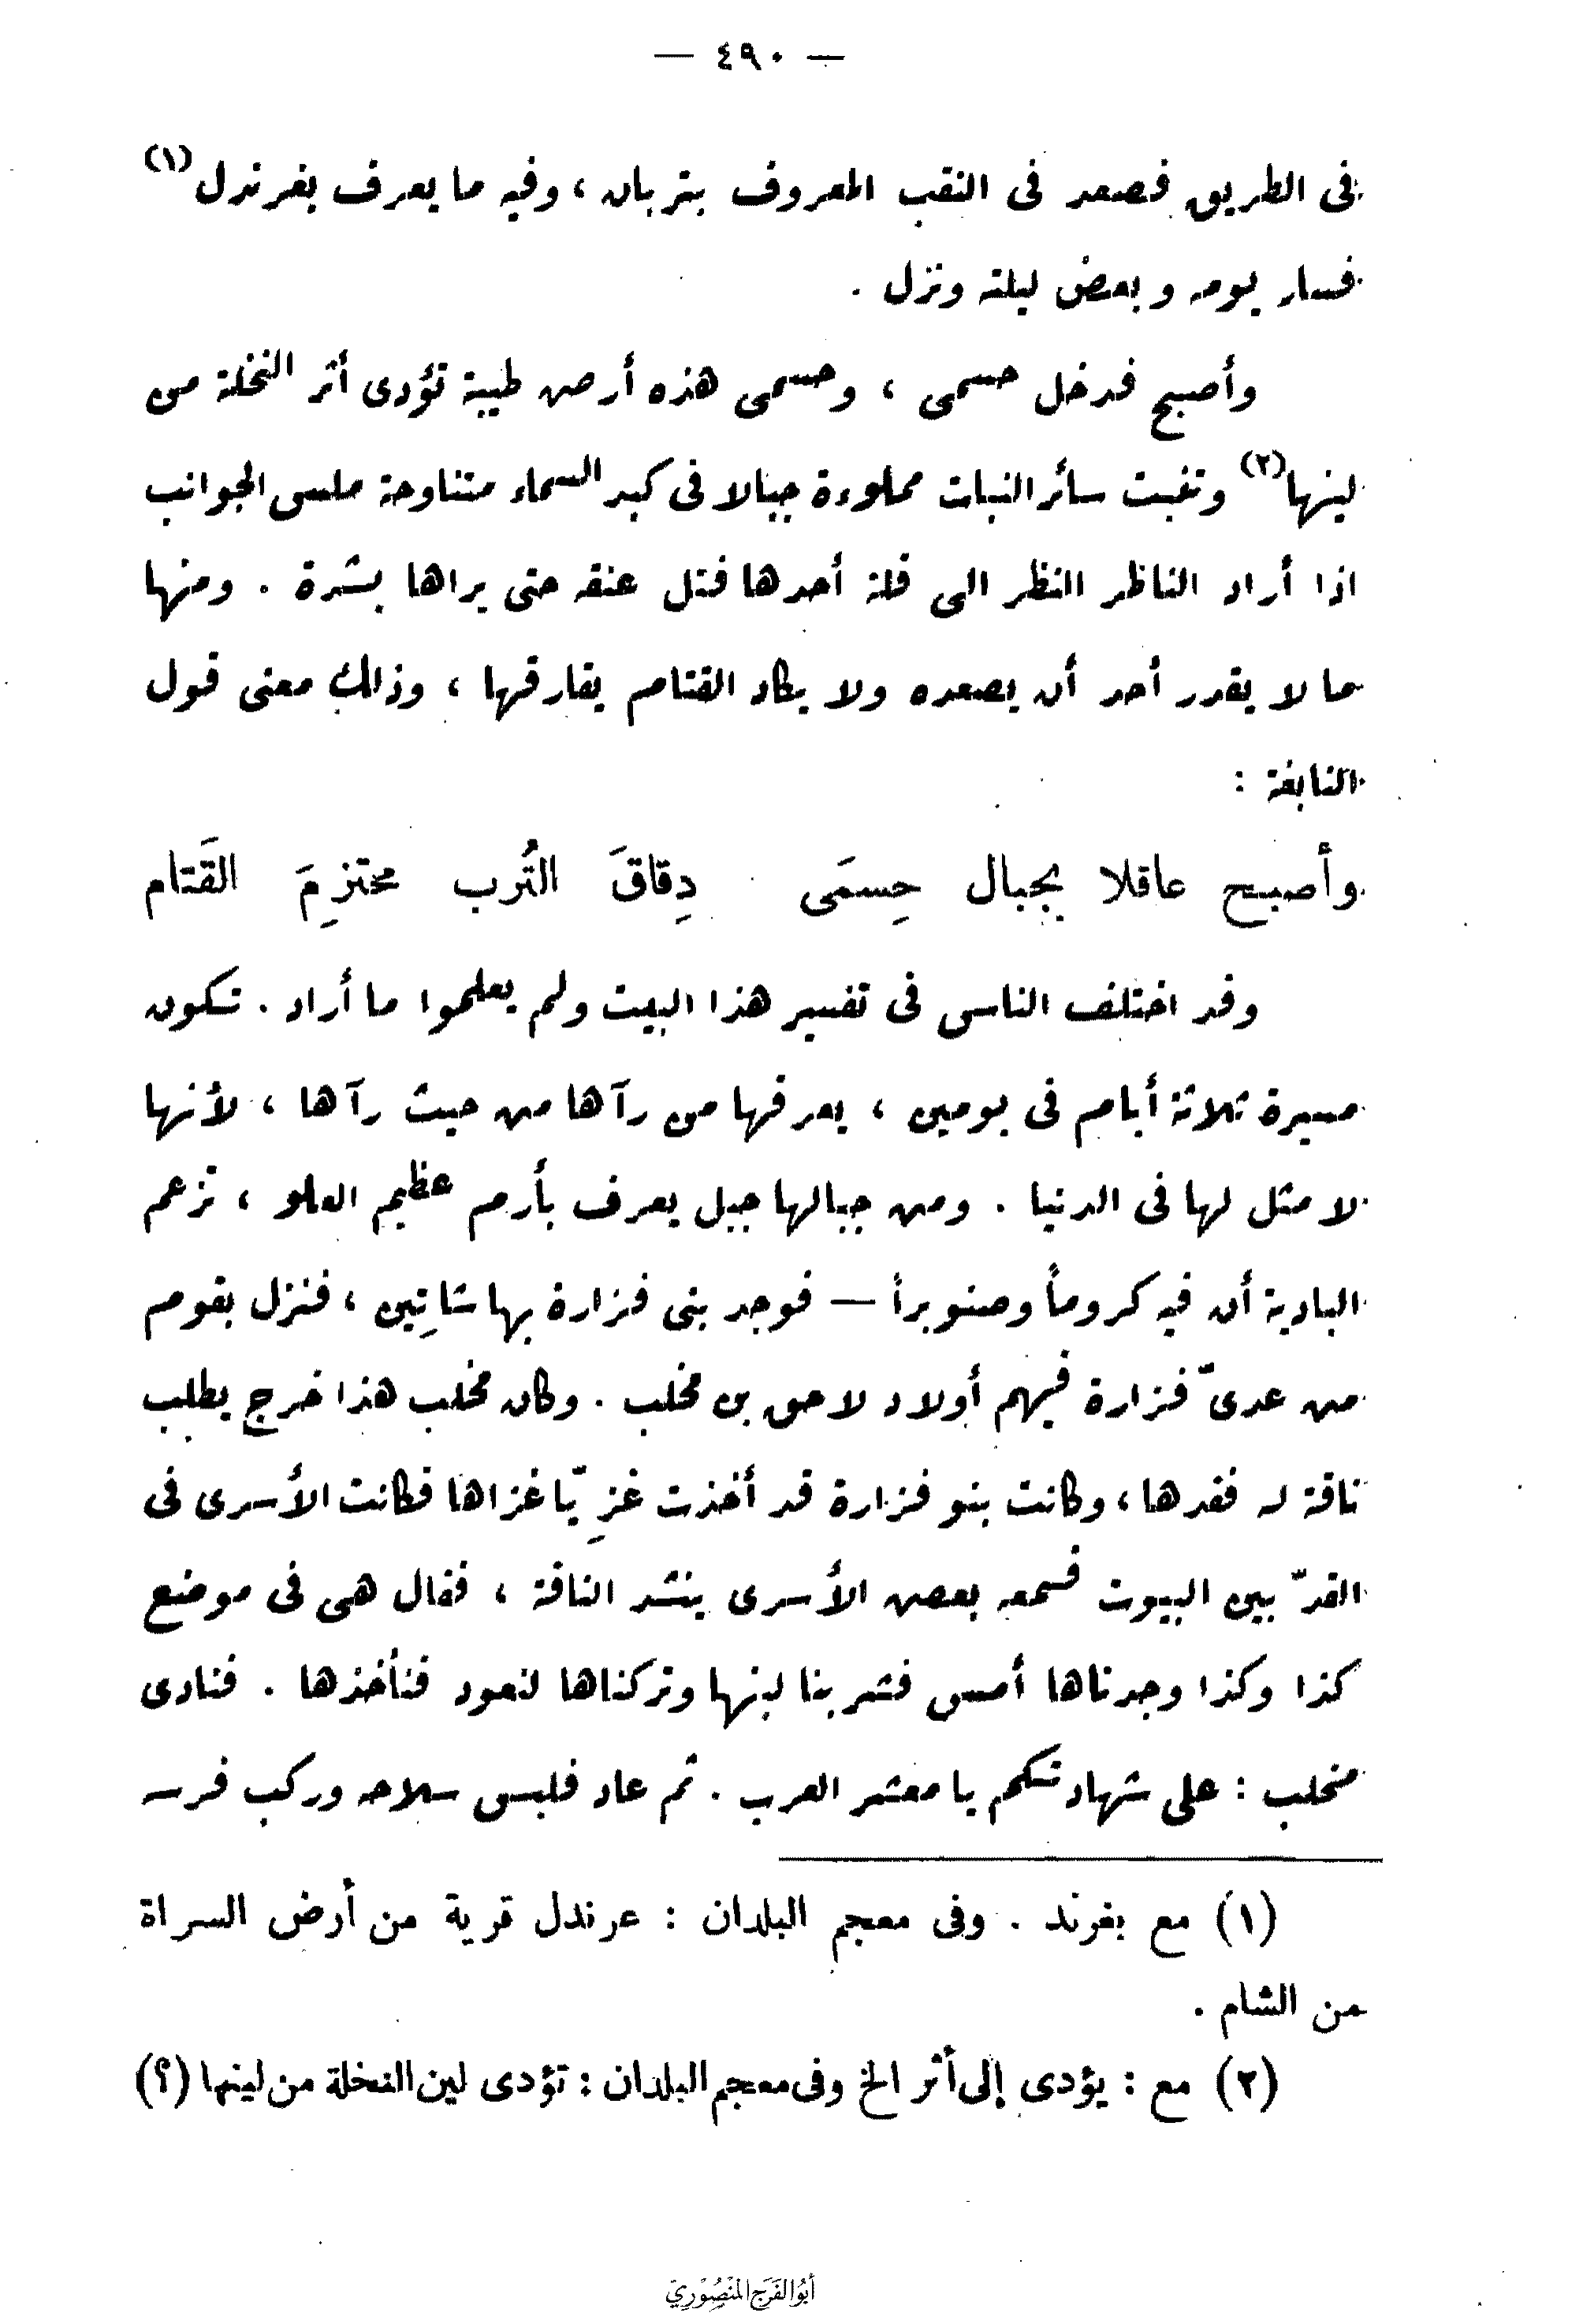 — ٤٩٠ —
فى الطريق فصعد فى النقب المعروف بتربان ، وفيه ما يعرف بغرندل (١)
فسار يومه وبعض ليلته ونزل .
وأصبح فدخل حسمى ، وحسمى هذه أرض طيبة تؤدى أثر النخلة من
لينها (٢) وتنبت سائر النبات مملوءة جبالا فى كبد السماء متناوحة ملس الجوانب
اذا أراد الناظر النظر الى قلة أحدها فتل عنقه حتى يراها بشدة . ومنها
ما لا يقدر أحد أن يصعده ولا يكاد القتام يفارقها ، وذلك معنى قول
النابغة :
وأصبح عاقلا بجبال حِسمَى دِقاقَ التُرب محتزِمَ القَتام
وقد اختلف الناس فى تفسير هذا البيت ولم يعلموا ما أراد . تكون
مسيرة ثلاثة أيام فى يومين ، يعرفها من رآها من حيث رآها ، لأنها
لا مثل لها فى الدنيا . ومن جبالها جبل يعرف بأرم عظيم العلو ، تزعم
البادية أن فيه كروماً وصنوبراً — فوجد بنى فزارة بها شاتِين ، فنزل بقوم
من عدىّ فزارة فيهم أولاد لاحق بن مخلب . وكان مخلب هذا خرج يطلب
ناقة له فقدها ، وكانت بنو فزارة قد أخذت غزِيّا غزاها فكانت الأسرى فى
القدّ بين البيوت فسمعه بعض الأسرى ينشد الناقة ، فقال هى فى موضع
كذا وكذا وجدناها أمس فشربنا لبنها وتركناها لنعود فنأخذها . فنادى
مخلب : على شهادتكم يا معشر العرب . ثم عاد فلبس سلاحه وركب فرسه
(١) مع بغرند . وفى معجم البلدان : عرندل قرية من أرض السراة
من الشام .
(٢) مع : يؤدى إلى أثر الخ وفى معجم البلدان : تؤدى لين النخلة من لينها (؟)
أبُوالفَرَج المَنْصُوْرِي